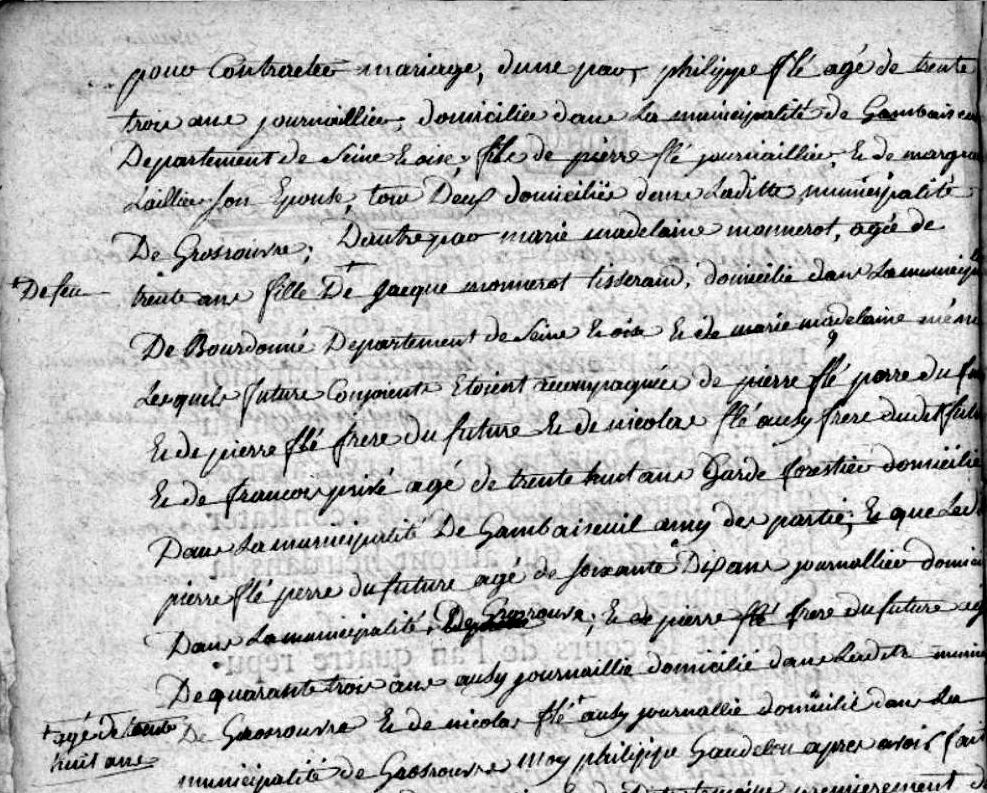 pour Contractee mariage, dune par, philippe flé agé de trente
trois ans journaillier, domicilié dans La municipalité de Gambaiseuil
Departement de Seine Et oise, fils de pierre flé journaillier, Et de
Laillier son Epouse, tous Deux domiciliés dans Laditte municipalité
De Grosrouvre; Dautre par marie madelaine monnerot, agée de
+ Defeu
trente ans fille De + Jacque monnerot tisserand, domicilié dans La
De Bourdonné Departement de Seine Et oise Et de marie madelaine
Lesquels future Conjoints Etoient acompagnés de pierre flé perre du
Et de pierre flé frere du future Et de nicolas flé ausy frere dudit
Et de francois privé agé de trente huit ans Garde forestier domicilié
Dans La municipalité De Gambaiseuil amy des partie; Et que Ledit
pierre flé perre du future agé de soixante Dix ans journallier
Dans La municipalité, De Grosrouvre; Et de pierre flé frere du future
De quarante trois ans ausy journaillie domicilié dans Ladite
+ agé de trente
huit ans
De Grosrouvre Et de nicolas flé + ausy journallié domicilié dans La
municipalité de Grosrouvre moy philippe Gaudelou apres avoir fait
premierement